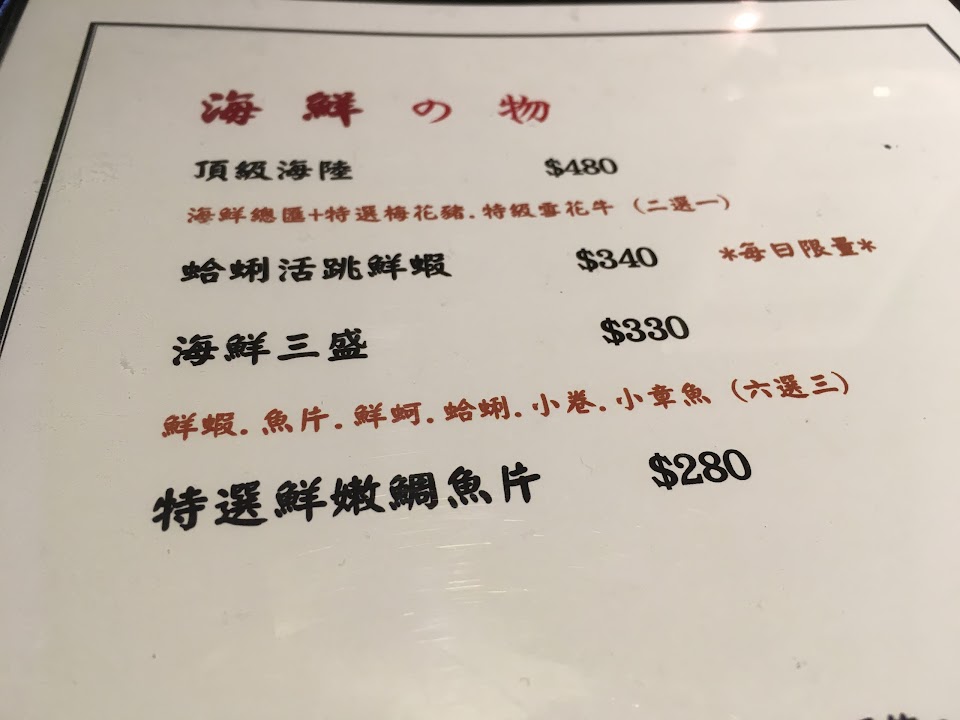 海鮮の物
頂級海陸 $480
海鮮總匯+特選梅花豬.特級雪花牛 (二選一)
蛤蜊活跳鮮蝦 $340 *每日限量*
海鮮三盛 $330
鮮蝦.魚片.鮮蚵.蛤蜊.小卷.小章魚 (六選三)
特選鮮嫩鯛魚片 $280